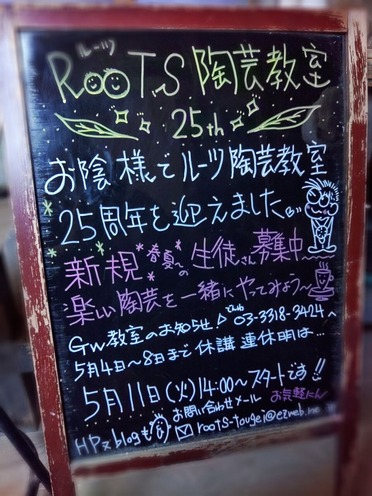 ルーツ
ROOTS 陶芸教室
25th
お陰様でルーツ陶芸教室
25周年を迎えました
新規 春夏の 生徒さん募集中
楽しい陶芸を一緒にやってみよう〜
GW教室のお知らせ 03-3318-3424へ
5月4日〜8日まで休講 連休明は…
5月11日(火)14:00〜スタートです!!
お問い合わせメール お気軽に
HP blogも roots-tougei@ezweb.ne